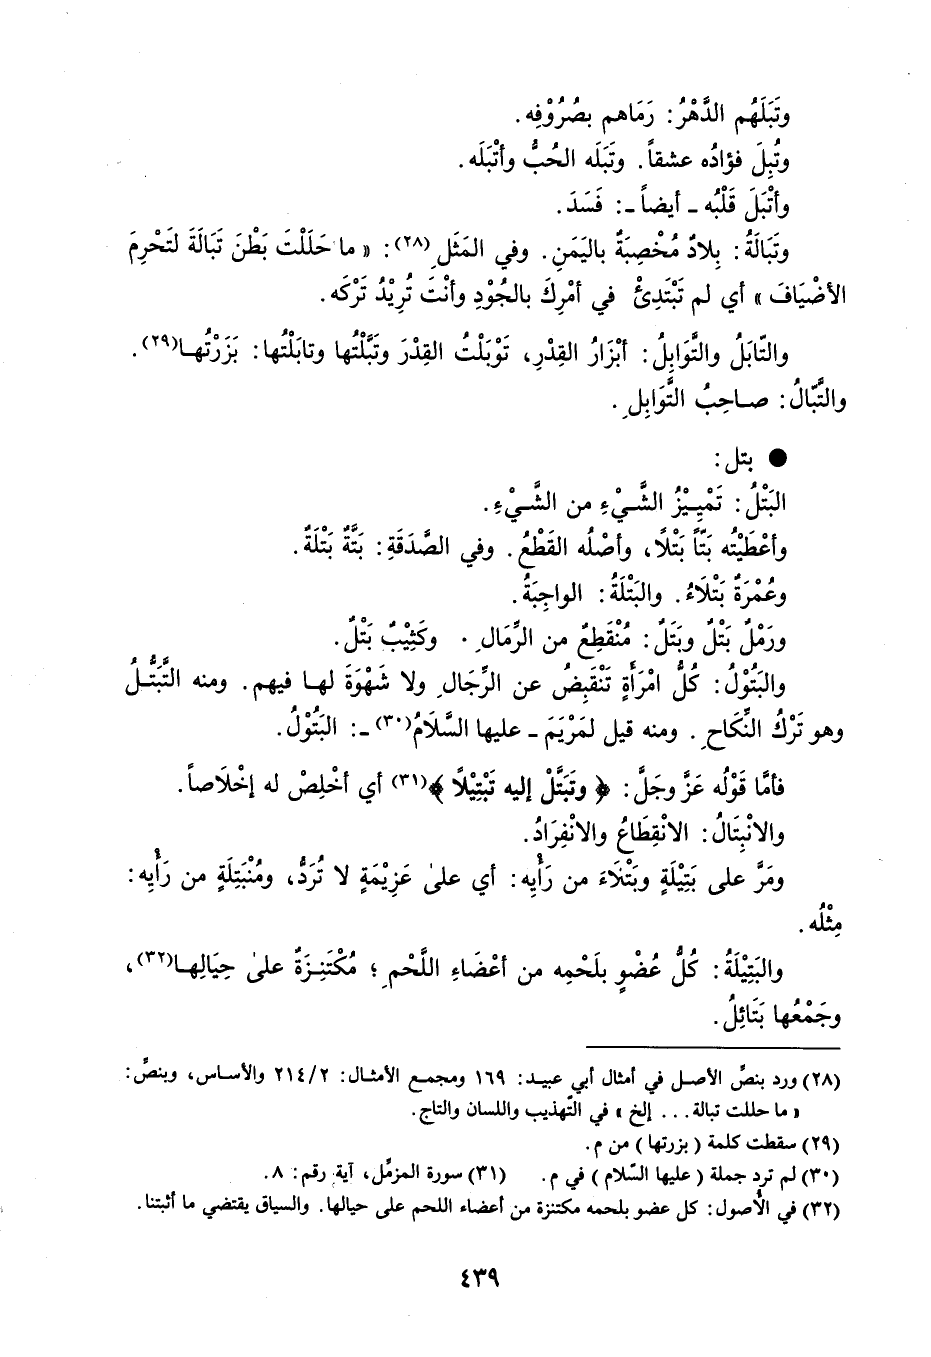 وتَبَلَهُم الدَّهْرُ: رَمَاهم بصُرُوْفِه.
وتُبِلَ فؤادُه عشقاً. وتَبَلَه الحُبُّ وأتْبَلَه.
وأتْبَلَ قَلْبُه ـ أيضاً ـ: فَسَدَ.
وتَبَالَةُ: بِلادٌ مُخْصِبَةٌ باليَمَنِ. وفي المَثَلِ(٢٨): « ما حَلَلْتَ بَطْنَ تَبَالَةَ لتَحْرِمَ
الأضْيَافَ » أي لم تَبْتَدِئْ في أمْرِكَ بالجُوْدِ وأنْتَ تُرِيْدُ تَرْكَه.
والتّابَلُ والتَّوَابِلُ: أبْزَارُ القِدْرِ، تَوْبَلْتُ القِدْرَ وتَبَّلْتُها وتابَلْتُها: بَزَرْتُها(٢٩).
والتَّبّالُ: صاحِبُ التَّوَابِلِ.
● بتل:
البَتْلُ: تَمْيِيْزُ الشَّيْءِ من الشَّيْءِ.
وأعْطَيْتُه بَتّاً بَتْلًا، وأصْلُه القَطْعُ. وفي الصَّدَقَةِ: بَتَّةٌ بَتْلَةٌ.
وعُمْرَةٌ بَتْلَاءُ. والبَتْلَةُ: الواجِبَةُ.
ورَمْلٌ بَتْلٌ وبَتَلٌ: مُنْقَطِعٌ من الرِّمَالِ. وكَثِيْبٌ بَتْلٌ.
والبَتُوْلُ: كُلُّ امْرَأَةٍ تَنْقَبِضُ عن الرِّجَالِ ولا شَهْوَةَ لها فيهم. ومنه التَّبَتُّلُ
وهو تَرْكُ النِّكَاحِ. ومنه قيل لمَرْيَمَ ـ عليها السَّلَامُ(٣٠) ـ: البَتُوْلُ.
فأمَّا قَوْلُه عَزَّ وجَلَّ: ﴿ وتَبَتَّلْ إليه تَبْتِيْلًا ﴾(٣١) أي أخْلِصْ له إخْلَاصاً.
والانْبِتَالُ: الانْقِطَاعُ والانْفِرَادُ.
ومَرَّ على بَتِيْلَةٍ وبَتْلَاءَ من رَأْيِه: أي على عَزِيْمَةٍ لا تُرَدُّ، ومُنْبَتِلَةٍ من رَأْيِه:
مِثْلُه.
والبَتِيْلَةُ: كُلُّ عُضْوٍ بلَحْمِه من أعْضَاءِ اللَّحْمِ؛ مُكْتَنِزَةٌ على حِيَالِها(٣٢)،
وجَمْعُها بَتَائِلُ.
(٢٨) ورد بنصِّ الأصل في أمثال أبي عبيد: ١٦٩ ومجمع الأمثال: ٢١٤/٢ والأساس، وبنصِّ:
« ما حللت تبالة... إلخ » في التّهذيب واللسان والتاج.
(٢٩) سقطت كلمة ( بزرتها ) من م.
(٣٠) لم ترد جملة ( عليها السّلام ) في م. (٣١) سورة المزمِّل، آية رقم: ٨.
(٣٢) في الأُصول: كل عضو بلحمه مكتنزة من أعضاء اللحم على حيالها. والسياق يقتضي ما أثبتنا.
٤٣٩